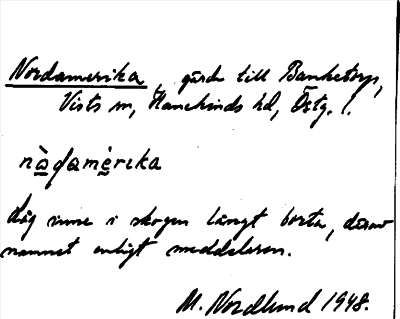 Nordamerika, gärde till Banketorp,
Vists sn, Hanekinds hd, Östg. l.
nàḍamèrika
Låg inne i skogen långt borta, därav
namnet enligt meddelaren.
M. Nordlund 1948.